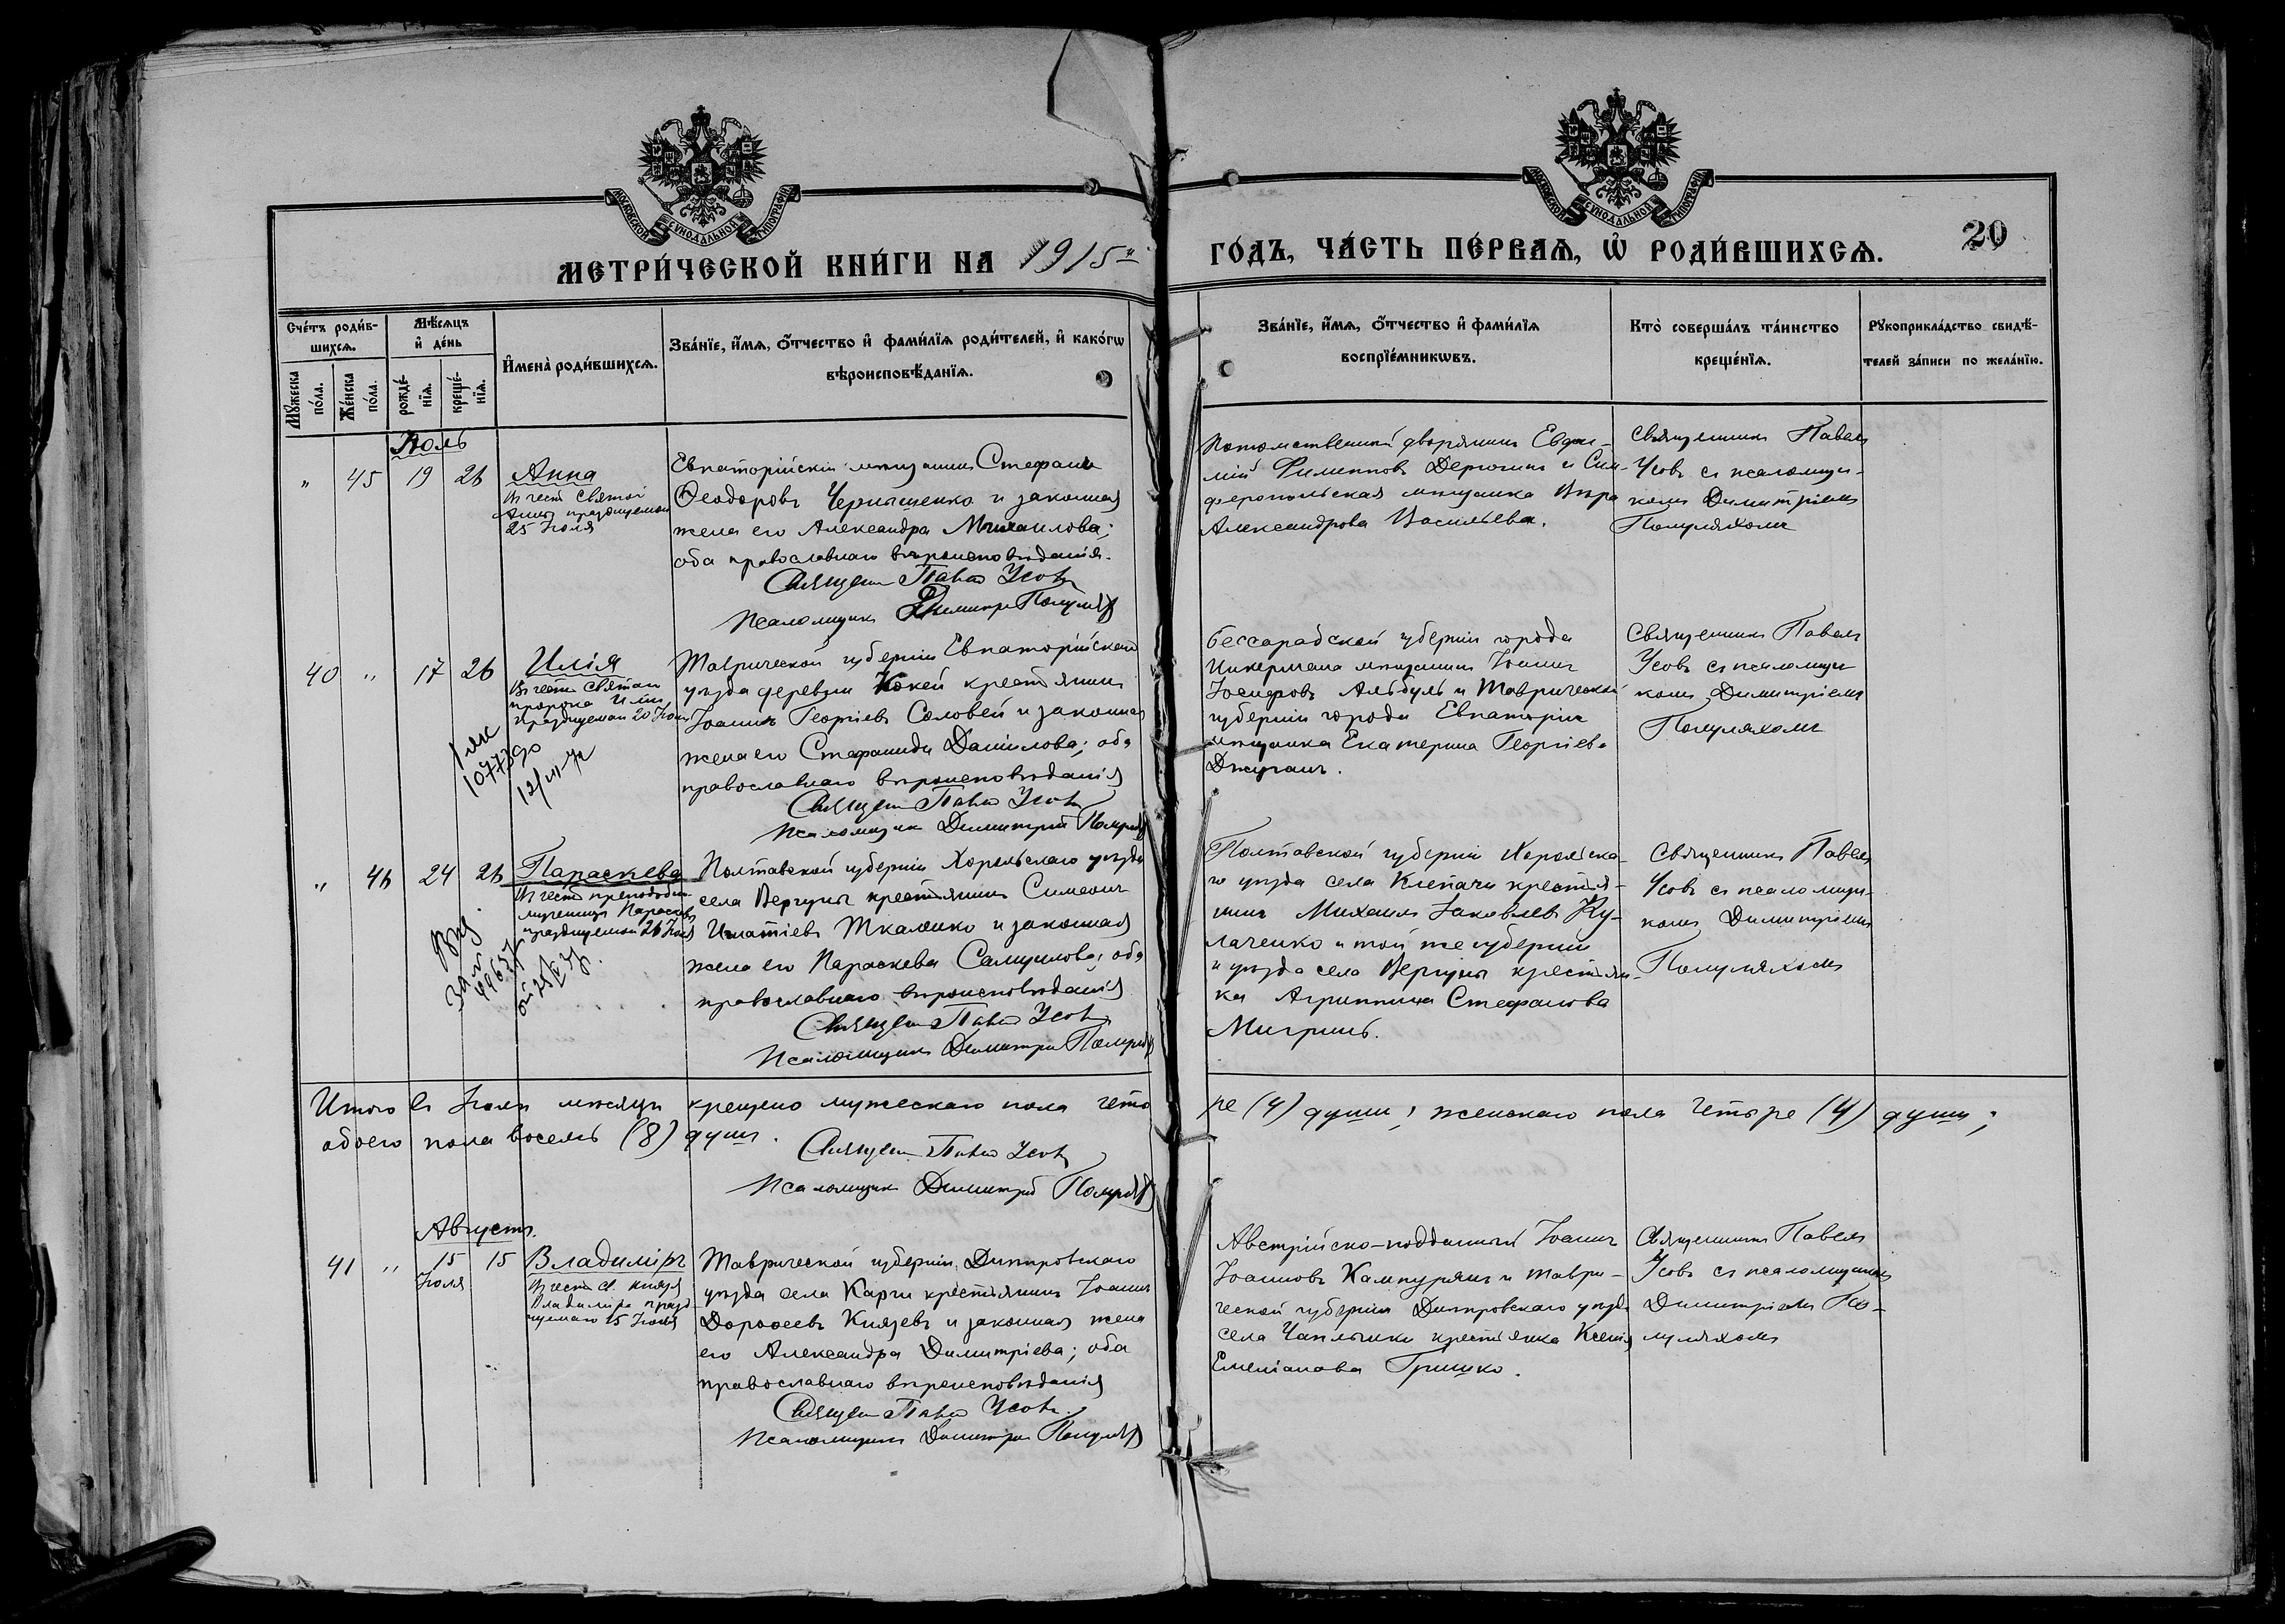 МОСКОВСКОЙ СѴНОДАЛЬНОЙ ТИПОГРАФІИ
МОСКОВСКОЙ СѴНОДАЛЬНОЙ ТИПОГРАФІИ
МЕТРИ́ЧЕСКОЙ КНИ́ГИ НА 1915й
ГО́ДЪ, ЧА́СТЬ ПЕ́РВАѦ, Ѡ҆ РОДИ́ВШИХСѦ.
20
Сче́тъ роди́в-
шихсѧ.
Мѣ́сѧцъ
и҆ де́нь
Мꙋ́жеска
по́ла.
Же́нска
по́ла.
рожде́-
нїѧ.
креще́-
нїѧ.
И҆мена̀ роди́вшихсѧ.
Зва́нїе, и҆́мѧ, о҆́тчество и҆ фами́лїѧ роди́телей, и҆ како́гѡ
вѣроисповѣ́данїѧ.
Зва́нїе, и҆́мѧ, о҆́тчество и҆ фами́лїѧ
воспрїе́мникѡвъ.
Кто̀ соверша́лъ та́инство
креще́нїѧ.
Рꙋкоприкла́дство свидѣ́-
телей за́писи по жела́нїю.
Іюль
" 45 19 26 Анна
Въ честь святой
Анны празднуемой
25 Іюля
Евпаторійскій мѣщанинъ Стефанъ
Ѳеодоровъ Чернышенко и законная
жена его Александра Михаилова;
оба православнаго вѣроисповѣданія.
Священ Павел Усовъ
Псаломщик Димитрий Полулях
Потомственный дворянинъ Евфи-
мій Филипповъ Дерюгинъ и Сим-
феропольская мѣщанка Вѣра
Александрова Васильева.
Священникъ Павелъ
Усовъ съ псаломщи-
комъ Димитріемъ
Полуляхомъ
40 " 17 26 Илія
Въ честь святаго
пророка Иліи
празднуемаго 20 Іюля
Таврической губерніи Евпаторійскаго
уѣзда деревни Кокей крестьянинъ
Іоаннъ Георгіевъ Соловей и законная
жена его Стефанида Даніилова; оба
православнаго вѣроисповѣданія
Священ Павел Усовъ
Псаломщик Димитрий Полулях
Бессарабской губерніи города
мѣщанинъ Іоаннъ
Іосифовъ Альбулъ и Таврической
губерніи города Евпаторіи
мѣщанка Екатерина Георгіева
Джуганъ.
Священникъ Павелъ
Усовъ съ псаломщи-
комъ Димитріемъ
Полуляхомъ
" 46 24 26 Параскева
Въ честь преподобно-
мученицы Параскевы
празднуемой 26 Іюля
Полтавской губерніи Хорольскаго уѣзда
села Вергуны крестьянинъ Симеонъ
Игнатіевъ Ткаченко и законная
жена его Параскева Самуилова; оба
православнаго вѣроисповѣданія
Священ Павел Усовъ
Псаломщик Димитрий Полулях
Полтавской губерніи Хорольска-
го уѣзда села Клепачи крестья-
нинъ Михаилъ Іаковлевъ Ку-
лаченко и той же губерніи
и уѣзда села Вергуны крестьян-
ка Агриппина Стефанова
Мигринъ.
Священникъ Павелъ
Усовъ съ псаломщи-
комъ Димитріемъ
Полуляхомъ
Итого въ Іюлѣ мѣсяцѣ крещено мужескаго пола четы
ре (4) души, женскаго пола четыре (4) души;
обоего пола восемь (8) душъ.
Священ Павел Усовъ
Псаломщик Димитрий Полулях
Августъ.
41 " 15 15 Владиміръ
Іюля
Въ честь св. князя
Владиміра празд-
нуемаго 15 Іюля
Таврической губерніи Днѣпровскаго
уѣзда села Карги крестьянинъ Іоаннъ
Дороѳеевъ Князевъ и законная жена
его Александра Димитріева; оба
православнаго вѣроисповѣданія
Священ Павел Усовъ
Псаломщик Димитрий Полулях
Австрійско-подданный Іоаннъ
Іоанновъ Кампурянъ и Таври-
ческой губерніи Днѣпровскаго уѣзда
села Чаплынки крестьянка Ксенія
Емеліанова Гришко.
Священникъ Павелъ
Усовъ съ псаломщикомъ
Димитріемъ По-
луляхомъ